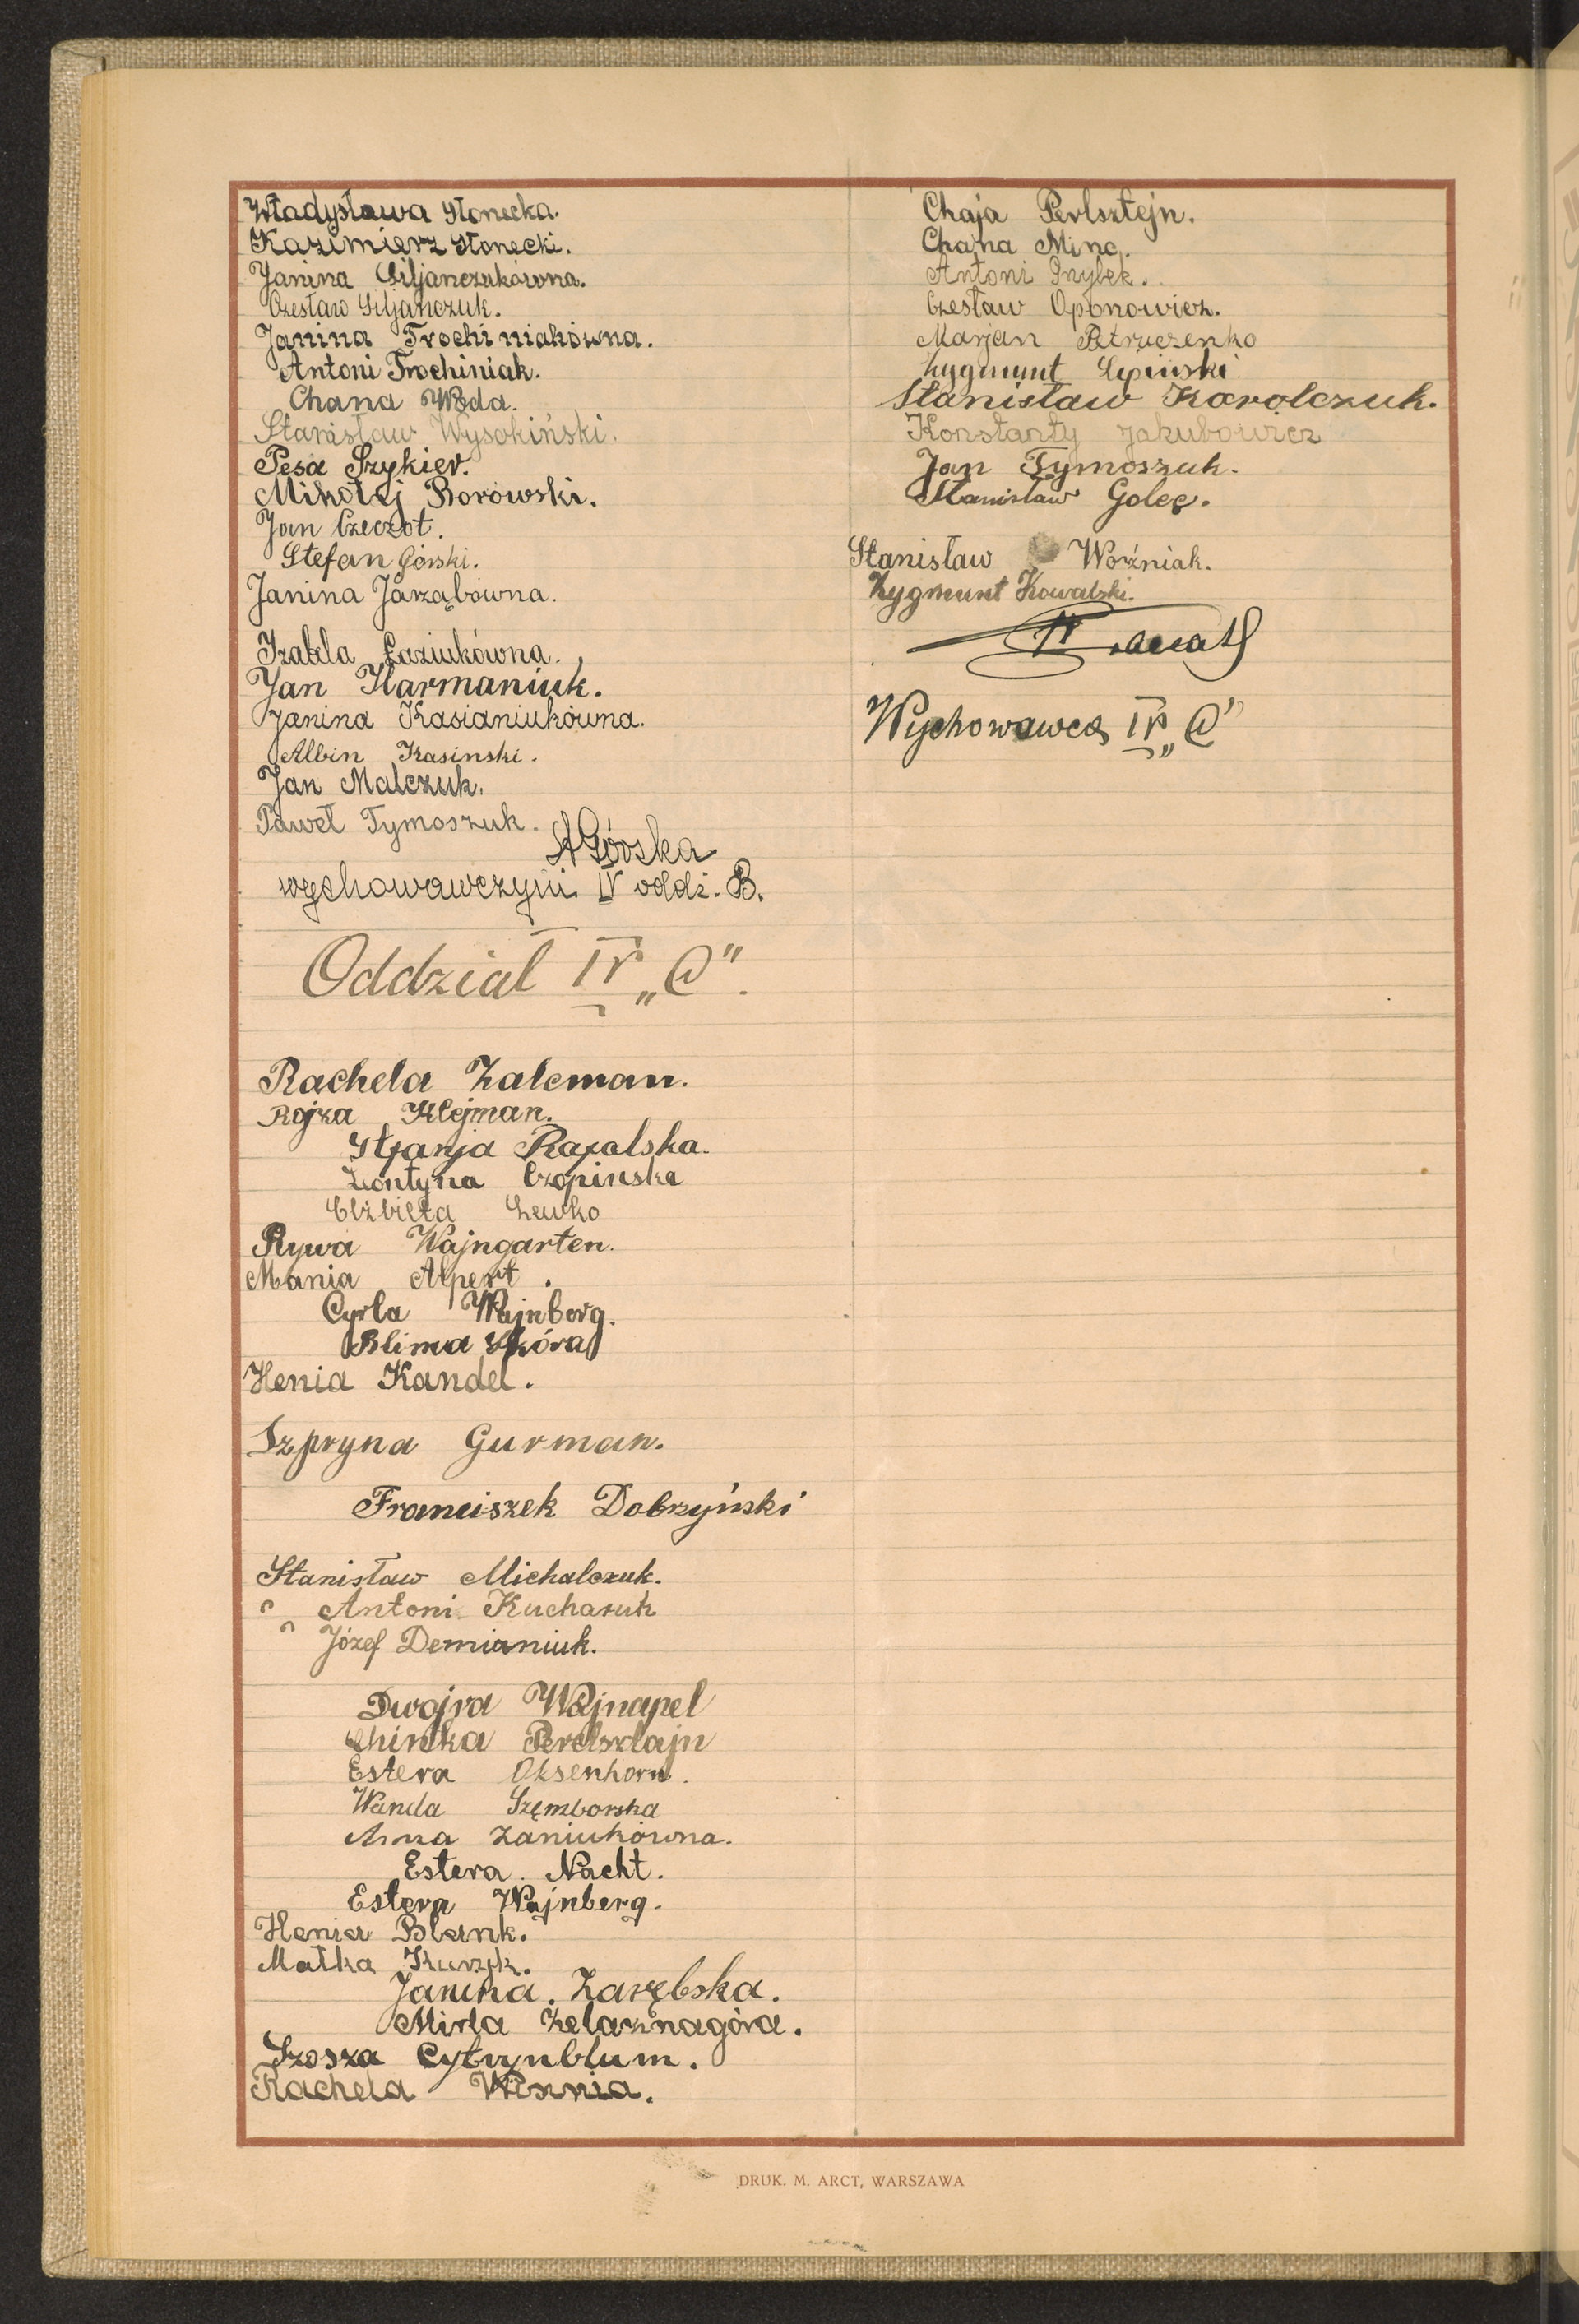 Władysława Słonecka.
Kazimierz Słonecki.
Janina Giljanczukówna.
Czesław Giljańczuk.
Janina Trochimiakówna.
Antoni Trochimiak.
Chana Woda.
Stanisław Wysokiński.
Pesa Szykier.
Mikołaj Borowski.
Jan Czeczot.
Stefan Górski.
Janina Jarząbówna.
Izabela Łaziukówna.
Jan Harmaniuk.
Janina Kasianiukówna.
Albin Kasinski.
Jan Malczuk.
Paweł Tymoszuk.
AGórska
wychowawczyni IV oddz. B.
Oddział IV „C".
Rachela Zalcman.
Rojza Klejman.
Stefanja Rafalska.
Leontyna Czopinska
Elżbieta Lewko
Rywa Wajngarten.
Mania Alpert.
Cyrla Wajnberg.
Blima Skóra
Henia Kandel.
Szpryna Gurman.
Franciszek Dobrzyński
Stanisław Michalczuk.
Antoni Kucharuk
Józef Demianiuk.
Dwojra Wajnapel
Chinka Perelsztajn
Estera Oksenhorn.
Wanda Szemborska
Anna Zaniukówna.
Estera Nacht.
Estera Wajnberg.
Henia Blank.
Małka Kurzyk.
Janina. Zarębska.
Mirla Żelaznagóra.
Szosza Cytrynblum.
Rachela Wisznia.
Chaja Perlsztejn.
Chana Minc.
Antoni Grzybek.
Czesław Oponowicz.
Marjan Petruczenko
Zygmunt Lipiński
Stanisław Karolczuk.
Konstanty Jakubowicz
Jan Tymoszuk.
Stanisław Golec.
Stanisław Woźniak.
Zygmunt Kowalski.
Wychowawca IV „C"
DRUK. M. ARCT, WARSZAWA